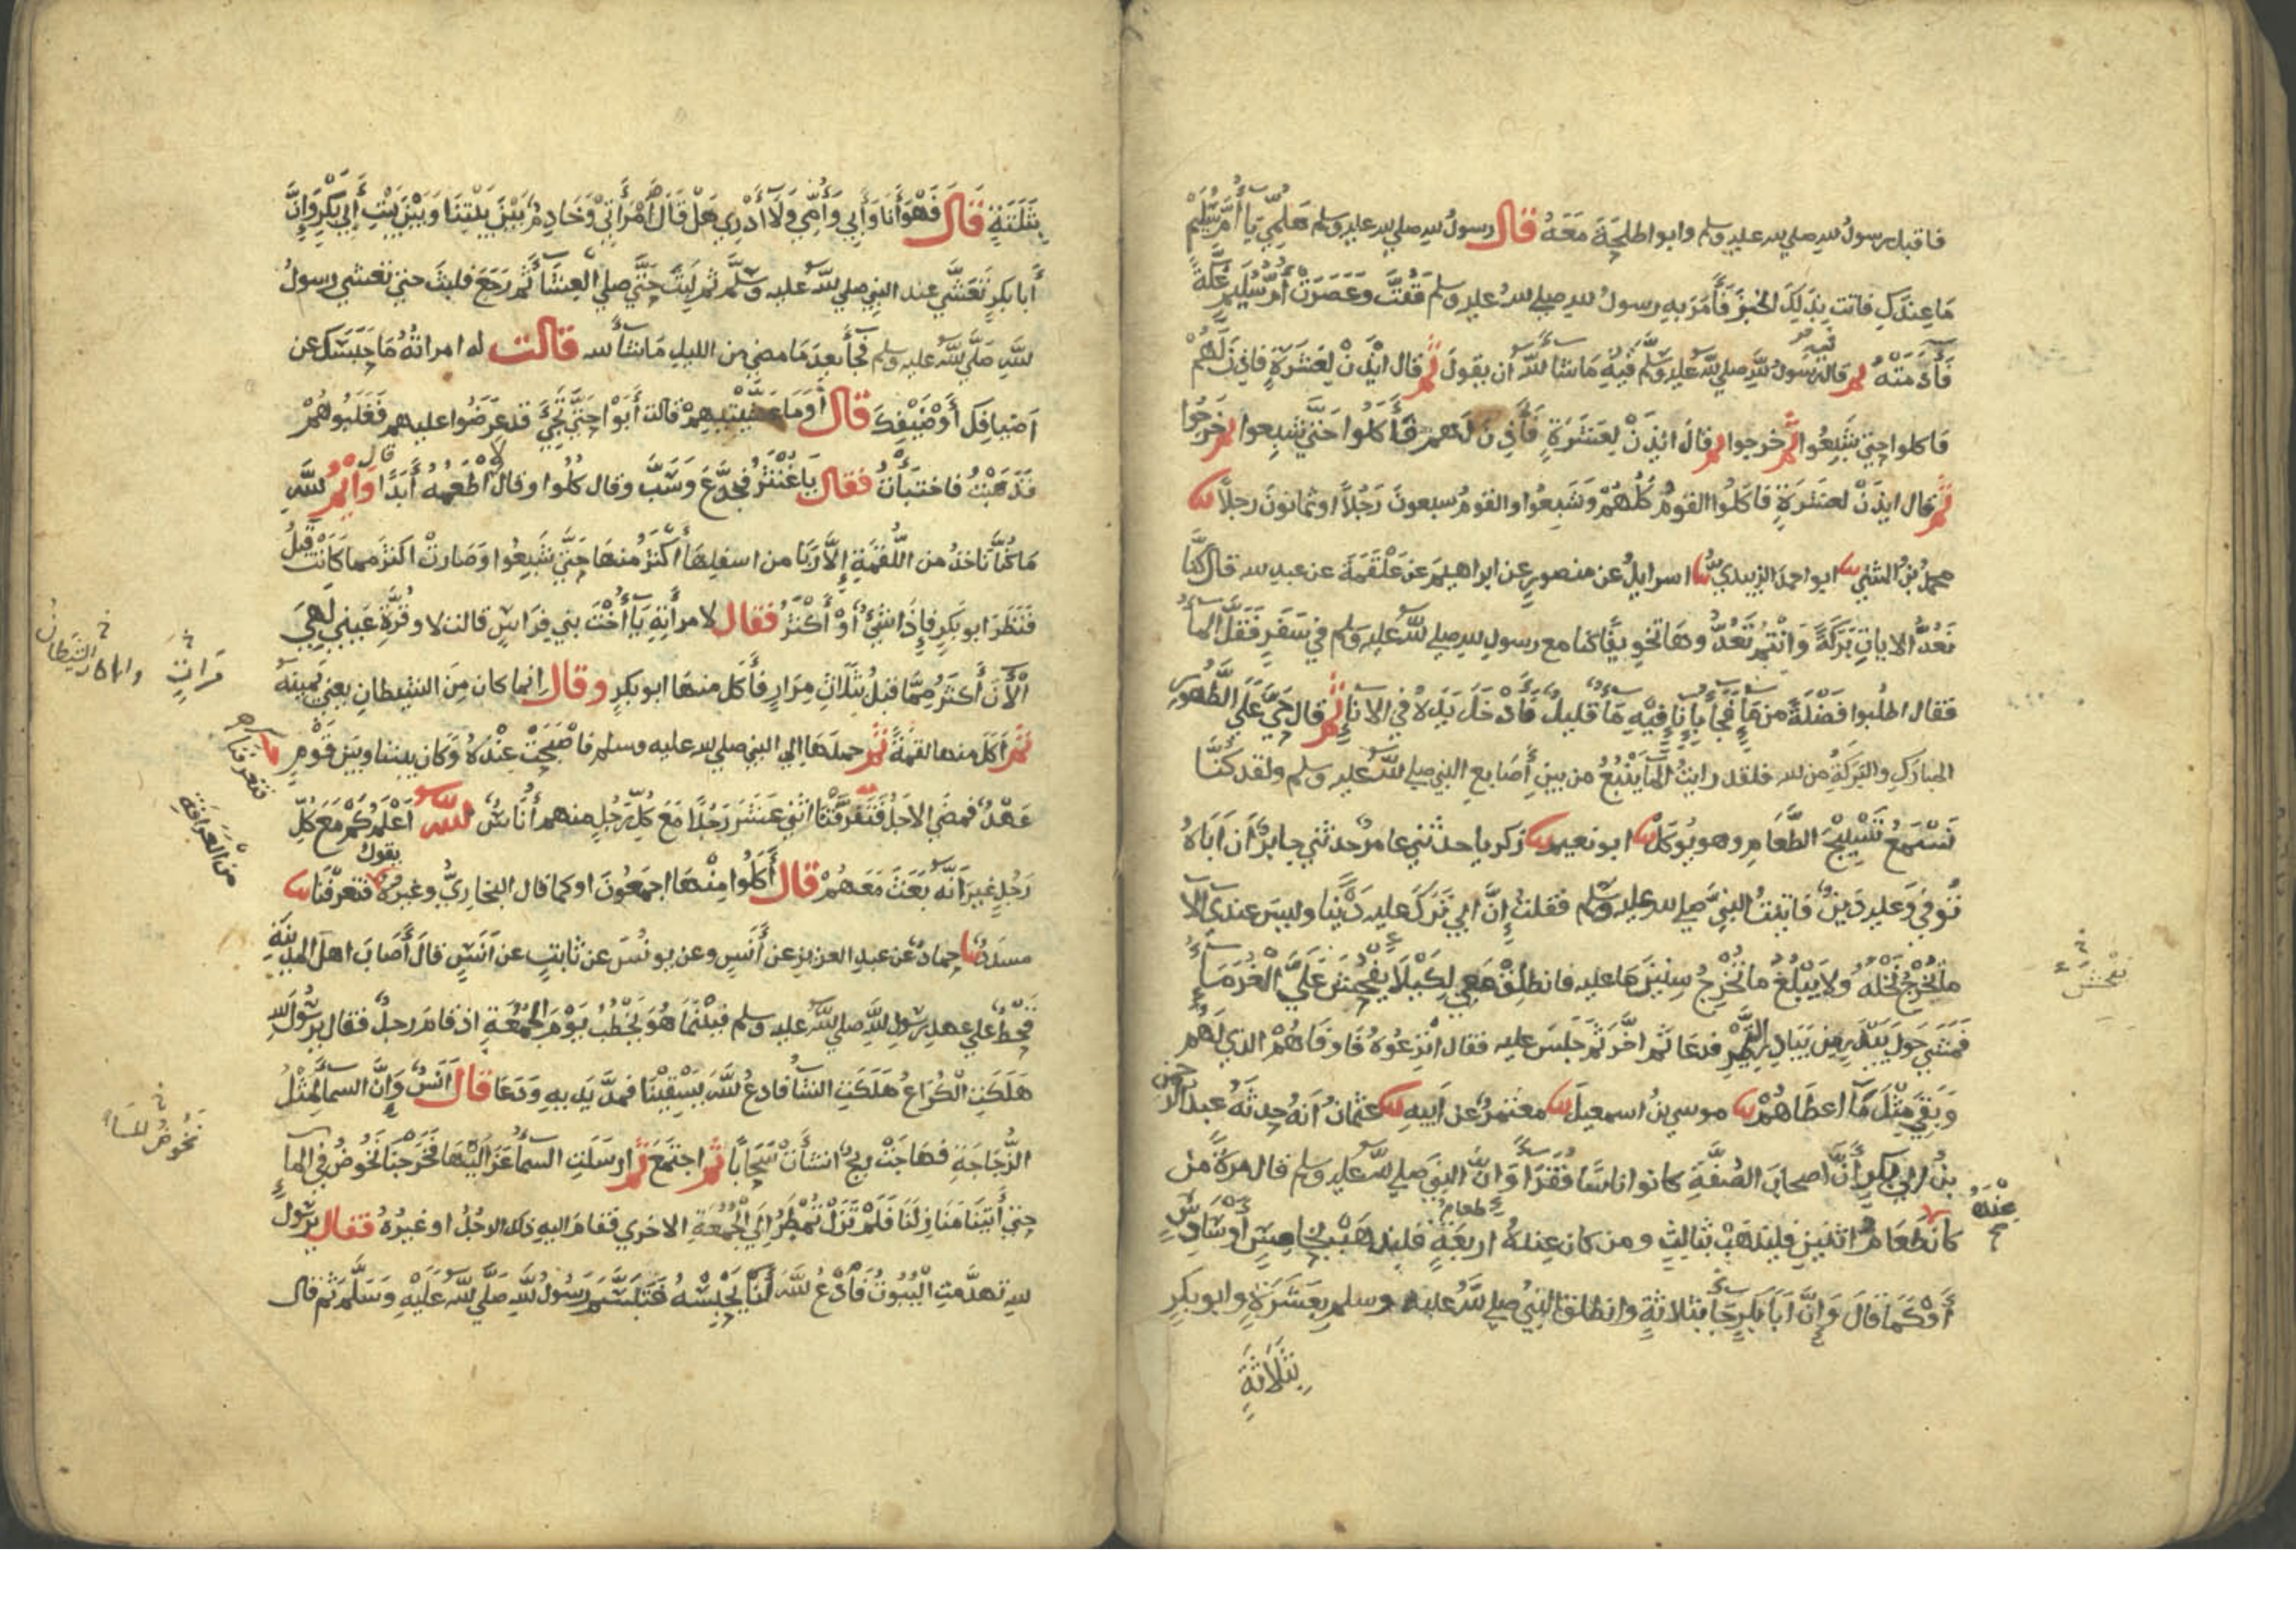 فاقبل رسولُ لله صلي لله عليه وسلم وابوا طلحةَ مَعَهُ قال رسولُ لله صلي لله عليه وسلم هَلُمِّي يَا أُمَّ سُلَيْمٍ
مَا عِنْدَكِ فاتت بِذَلِكَ الخبزِ فَأَمَرَ بِهِ رسولُ لله صلي للهُ عليه وسلم فَفُتَّ وَعَصَرَتْ أُمُّ سُلَيْمٍ عُكَّةً
فَأَدَمَتْهُ ثم قال رسولُ للهِ صلي للهُ عليه وسلم فِيْهِ مَا شَآءَ للهُ أن يقولَ ثم قال ائْذَنْ لِعَشَرَةٍ فاذِنَ لَهُمْ
فاكلوا حتي شَبِعُوا ثم خرجوا ثم قال ائذِنْ لِعَشَرَةٍ فَأَذِنَ لَهم فأَكَلُوا حَتَّي شَبِعوا ثم خَرَجُوا
ثم قال ايذَنْ لعشرَةٍ فَاكَلُوا القومُ كُلُّهُمْ وَشَبِعُوا والقومُ سبعونَ رَجُلاً او ثمانونَ رجلاً ثنا
محمدُ بْنُ المثني ثنا ابو احمدَ الزبيديُّ ثنا اسرايلُ عن منصورٍ عن ابراهيمَ عن عَلْقَمَةَ عن عبدِ لله قال كُنَّا
نَعُدُّ الاياتِ بَرَكَةً وَانْتُمْ تَعُدُّونَهَا تَخْوِيفًا كنا مع رسولِ لله صلي للهُ عليه وسلم في سَفَرٍ فَقَلَّ الْمَآءُ
فقال اطلُبوا فَضْلَةً من مَآءٍ فَجَآءُوا بِإِنَاءٍ فِيْهِ مَآءٌ قليلٌ فَأَدْخَلَ يَدَهُ في الاناءِ ثم قال حَيَّ عَلَي الطَّهُورِ
المبارَكِ والبَرَكَةُ من لله فلقد رايتُ المآءَ يَنْبُعُ من بينِ أَصَابِعِ النبي صلي للهُ عليه وسلم ولقد كُنَّا
نَسْمَعُ تَسْبِيْحَ الطَّعَامِ وهو يُوكَلُ ثنا ابو نعيم ثنا زكريا حدثني عامرٌ حدثني جابرٌ أن أَبَاهُ
تُوُفِّيَ وَعليه دَينٌ فاتيتُ النبيَّ صلي لله عليه وسلم فقلتُ إِنَّ ابي تَرَكَ عليه دَيْنًا وليسَ عندي الا
ما يُخْرِجُ نَخْلُهُ ولا يَبْلُغُ ما يُخْرِجُ سِنِينَ مَا عليه فانطلِقْ مَعِي لِكَيْلَا يُفْحِشَ عَلَيَّ الْغُرَمَآءُ
فَمَشَي حَوْلَ بَيْدَرٍ مِنْ بَيَادِرِ التَّمْرِ فدعَا ثم اخَّرَ ثُمَّ جَلَسَ عليه فقال انْزِعُوهُ فَاوفَاهُمْ الذي لَهُمْ
وَبَقِيَ مِثْلُ مَا اعطَاهُمْ ثنا موسي بنُ اسمعيلَ ثنا معتمرٌ عن أبيهِ ثنا عثمانُ أنهُ حدثَهُ عبد الرحمنِ
بنُ ابي بكرٍ أَنَّ اصحابَ الصُّفَّةِ كانوا اناسًا فُقَرَآءَ وَانَّ النبيَ صلي للهُ عليه وسلم قال مرةً من
كانَ عِنْدَهُ طَعَامُ اثنينِ فليذهَبْ بثالثٍ ومن كان عندهُ طعامُ اربعَةٍ فليذهَبْ بخامسٍ أَوْ سَادِسٍ
أَوْ كَمَا قَالَ وَإِنَّ ابَا بَكْرٍ جَآءَ بثلاثةٍ وانطلق النبيُ صلي للهُ عليه وسلم بِعَشَرَةٍ وابو بكرٍ
بِثَلَاثَةٍ
يُفْحِشَ
بِثَلَثَةٍ قَالَ فَهُوَ أَنَا وَأَبِي وَأُمِّي وَلَا أَدْرِي هَلْ قَالَ امْرَأَتِي وَخَادِمٌ بَيْنَ بَيْتِنَا وَبَيْنَ بَيْتِ أَبِي بَكْرٍ وَإِنَّ
أَبَا بكرٍ تَعَشَّي عند النبي صلي للهُ عليه وسلَّم ثم لَبِثَ حَتَّي صلي العِشَآءَ ثم رَجَعَ فلبثَ حتي تعشي رسولُ
للهِ صَلَّي للهُ عليه وسلم فجآءَ بعدَ مَا مضي من الليلِ مَا شآءَ لله قالت له امراتُهُ مَا حَبَسَكَ عن
اضيافِكَ أَوْ ضَيْفِكَ قال أَوَمَا عَشَّيْتِيهِمْ قالت أَبَوْا حَتَّي تَجِيَ قد عَرَضُوا عليهم فَغَلَبُوهُمْ
فَذَهَبْتُ فاختبَأْتُ فقال يَا غُنْثَرُ فَجَدَّعَ وَسَبَّ وقال كُلُوا وقال لَا أَطْعَمُهُ أَبَدًا قال وَأَيْمُ للهِ
مَا كُنَّا نَاخذُ من اللُّقْمَةِ إِلَّا رَبَا من اسفلِهَا أَكْثَرُ منهَا حَتَّي شَبِعُوا وَصَارَتْ اكثرَ مما كَانَتْ قَبْلُ
فَنَظَرَ ابو بَكرٍ فإِذَا شَيْءٌ أَوْ أَكْثَرُ فقال لامرأَتِهِ يَا أُخْتَ بني فِرَاسٍ قالت لا وقُرَّةِ عَيْنِي لَهِيَ
الْآنَ أَكثَرُ مِمَّا قبلُ بثَلَاثِ مِرَارٍ فأَكَل منهَا ابو بكرٍ وقال انما كان مِنَ الشيطانِ يعني يَمِينَهُ
ثُمَّ أكَلَ منها لقمةً ثُمَّ حملَهَا الي النبي صلي لله عليه وسلم فاصْبَحَتْ عِنْدَهُ وَكان بيننا وبين قَوْمٍ
عَهْدٌ فمضَي الاجَلُ فَتَفَرَّقْنَا اثني عَشَرَ رَجُلًا مَعَ كُلِّ رَجُلٍ منهم أُنَاسٌ للهُ أَعْلَمُ كَمْ مَعَ كُلِّ
رَجُلٍ غيرَ أَنَّهُ بَعَثَ مَعَهُمْ قال أَكَلُوا مِنْهَا اجمَعُونَ او كما قال البخاريُّ وغيرُهُ يقولُ فتعرَّفْنَا ثنا
مسددٌ ثنا حمادٌ عن عبدِ العزيزِ عن أَنَسٍ وعن يونُسَ عن ثابتٍ عن أَنَسٍ قالَ أَصَابَ اهلَ المدينَةِ
قَحْطٌ علي عهدِ رسُولِ للهِ صلي للهُ عليه وسلم فبَيْنَمَا هُوَ يَخْطُبُ يَوْمَ الجُمُعَةِ اذ قامَ رجلٌ فقال يرسُولَ للهِ
هَلَكَتِ الْكُرَاعُ هَلَكَتِ الشَّاءُ فادعُ للهَ يَسْقِيْنَا فمدَّ يَدَيهِ وَدَعَا قال أَنَسٌ وَإِنَّ السمآءَ لَمِثْلُ
الزُّجَاجَةِ فَهَاجَتْ ريحٌ انشأَتْ سَحَابًا ثم اجتمَعَ ثم ارسَلَتِ السمآءُ عَزَالَيْهَا فَخَرَجنَا نَخُوضُ في المآءِ
حتي أَتَيْنَا مَنَازِلَنَا فَلَمْ تَزَلْ تُمْطِرُ إِلَي الْجُمُعَةِ الاخري فقامَ اليهِ ذلك الرجُلُ او غيرُهُ فقال يرسُولَ
لله تهدَّمتِ الْبُيُوتُ فَادْعُ للهَ لَنَا يَحْبِسْهُ فَتَبَسَّمَ رَسُولُ للهِ صَلَّي للهُ عَلَيْهِ وَسَلَّمَ ثم قال
مَرَاتٍ
فتعرفنا
مِنَ الْعَرَافَةِ
نَخُوضُ المآءَ